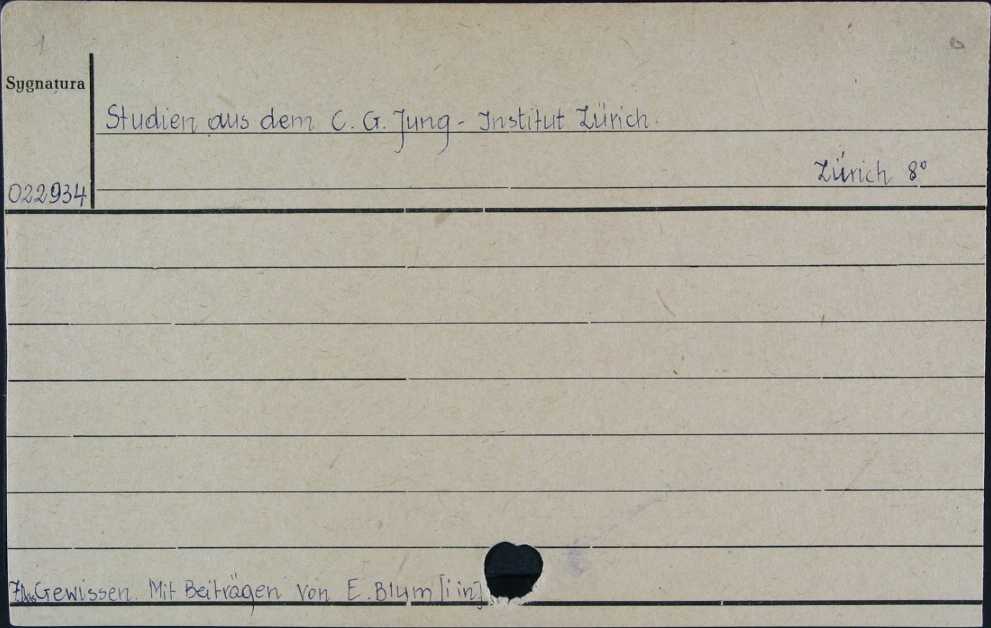 1
Sygnatura
Studien aus dem C. G. Jung - Institut Zürich.
Zürich 8°
022934
7. Das Gewissen. Mit Beiträgen von E. Blum [i in]